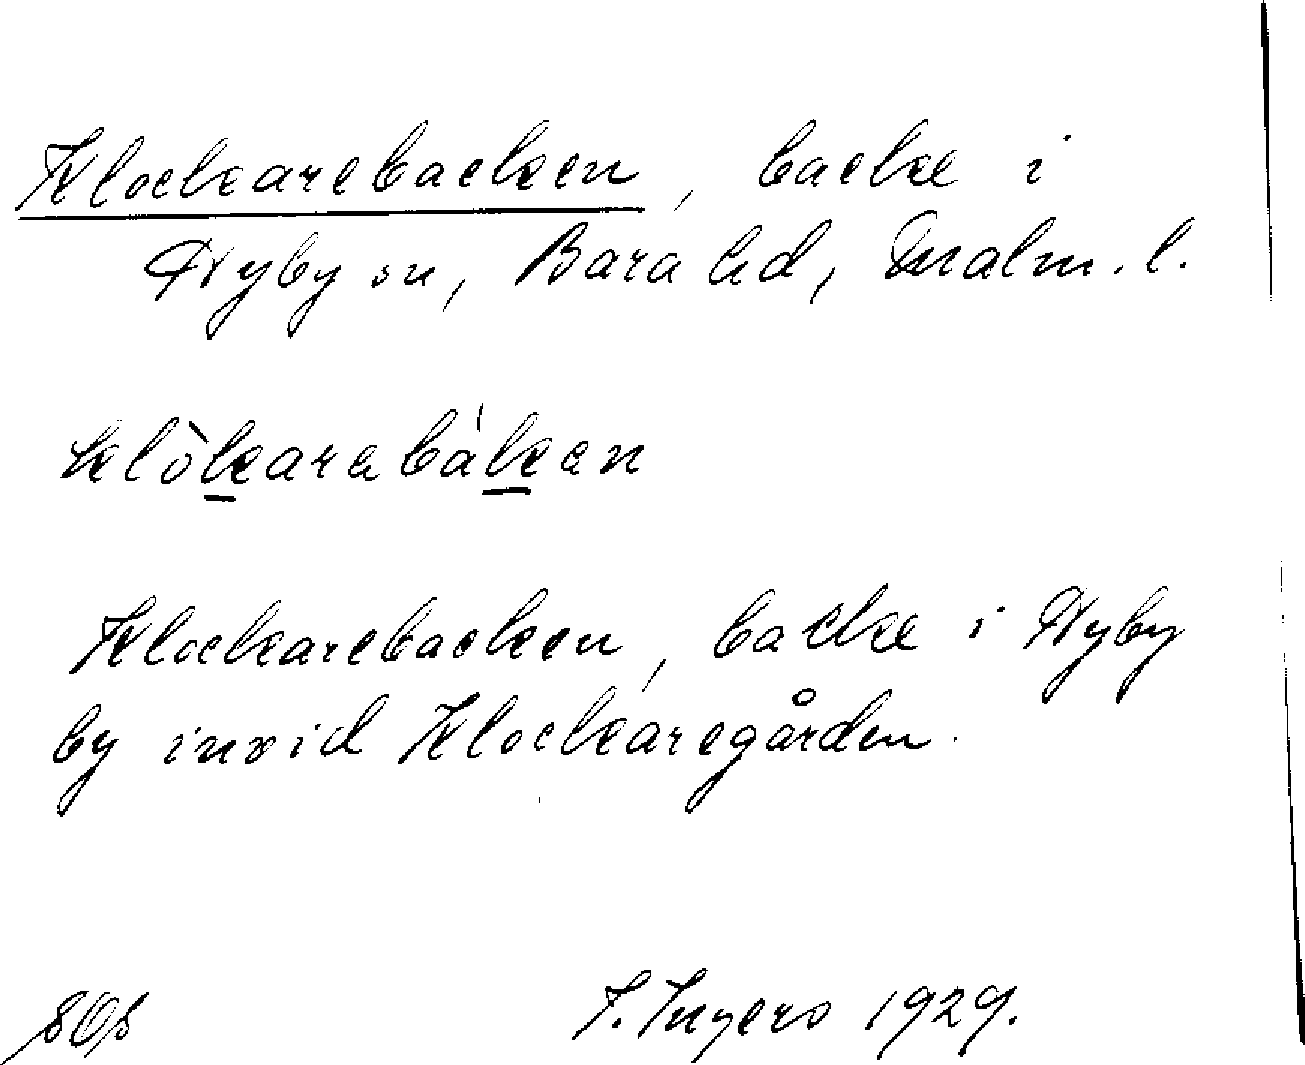 Klockarebacken, backe i
Nyby sn, Bara hd, Malm. l.
klòkarabákan
Klockarebacken, backe i Nyby
by invid Klockaregården.
I. Ingers 1929.